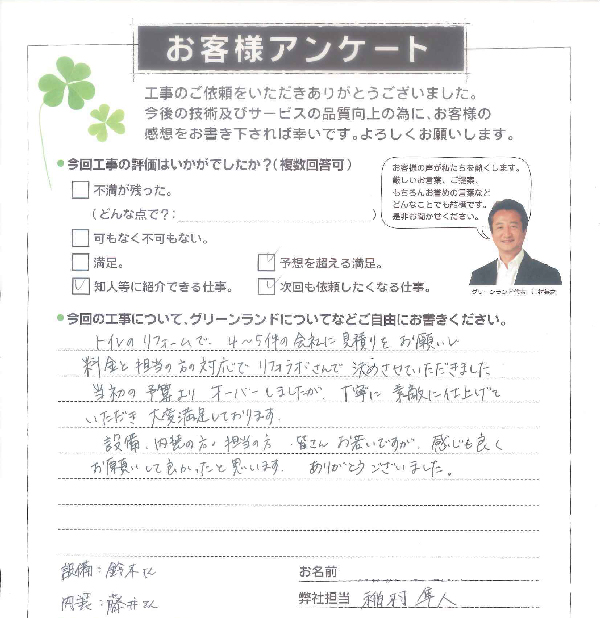 お客様アンケート
工事のご依頼をいただきありがとうございました。
今後の技術及びサービスの品質向上の為に、お客様の
感想をお書き下されば幸いです。よろしくお願いします。
●今回工事の評価はいかがでしたか?(複数回答可)
不満が残った。
(どんな点で?: )
可もなく不可もない。
満足。
予想を超える満足。
知人等に紹介できる仕事。
次回も依頼したくなる仕事。
お客様の声が私たちを動くします。
厳しいお言葉、ご提案、
もちろんお誉めの言葉など
どんなことでも結構です。
是非お聞かせください。
グリーンランド代表
●今回の工事について、グリーンランドについてなどご自由にお書きください。
トイレのリフォームで、4〜5件の会社に見積りをお願いし
料金と担当の方の対応でリフォラボさんで決めさせていただきました
当初の予算よりオーバーしましたが、丁寧に素敵に仕上げて
いただき大変満足しております。
設備、内装の方、担当の方、皆さんお若いですが、感じも良く
お願いして良かったと思います。ありがとうございました。
設備:鈴木さん
内装:藤井さん
お名前
弊社担当 稲村 隼人